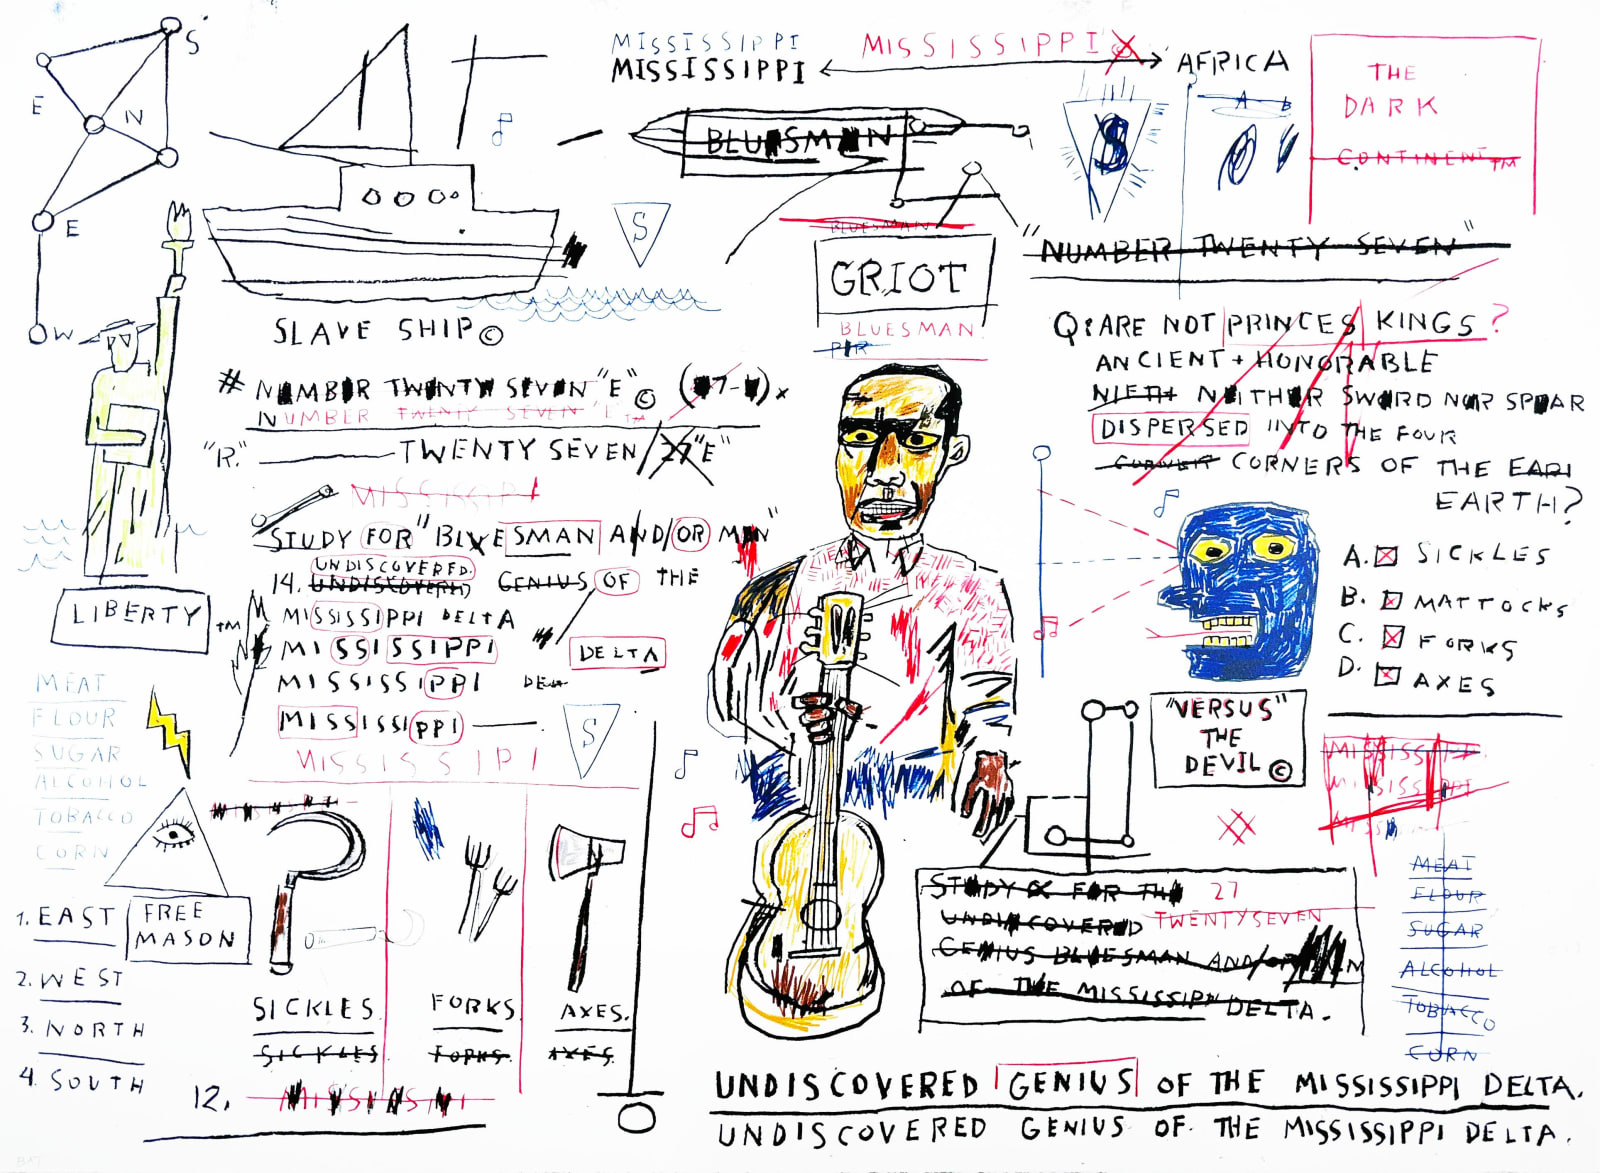 S
E
N
E
W
MISSISSIPPI
MISSISSIPPI
MISSISSIPPI
AFRICA
THE
DARK
CONTINENT TM
A B
$
BLUESMAN
BLUESMAN
GRIOT
BLUESMAN
S
"NUMBER TWENTY SEVEN"
SLAVE SHIP ©
# NUMBER TWENTY SEVEN "E" ©
NUMBER TWENTY SEVEN, E TM
"R." TWENTY SEVEN/27 "E"
STUDY FOR "BLUESMAN AND/OR MAN"
UNDISCOVERED.
14. UNDISCOVERED GENIUS OF THE
MISSISSIPPI DELTA
MISSISSIPPI
DELTA
MISSISSIPPI
MISSISSIPPI
S
MISSISSIPI
LIBERTY TM
MEAT
FLOUR
SUGAR
ALCOHOL
TOBACCO
CORN
FREE
MASON
1. EAST
2. WEST
3. NORTH
4. SOUTH
SICKLES
FORKS.
AXES.
SICKLES
FORKS.
AXES.
12.
Q: ARE NOT PRINCES KINGS?
ANCIENT + HONORABLE
NIETH NEITHER SWORD NOR SPEAR
DISPERSED INTO THE FOUR
CORNERS OF THE EARI
EARTH?
A. SICKLES
B. MATTOCKS
C. FORKS
D. AXES
"VERSUS"
THE
DEVIL ©
MISSISSIPPI
MISSISSIPPI
STUDY FOR THE 27
UNDISCOVERED TWENTYSEVEN
GENIUS BLUESMAN AND/OR
OF THE MISSISSIPI DELTA.
MEAT
FLOUR
SUGAR
ALCOHOL
TOBACCO
CORN
UNDISCOVERED GENIUS OF THE MISSISSIPPI DELTA.
UNDISCOVERED GENIUS OF THE MISSISSIPPI DELTA.